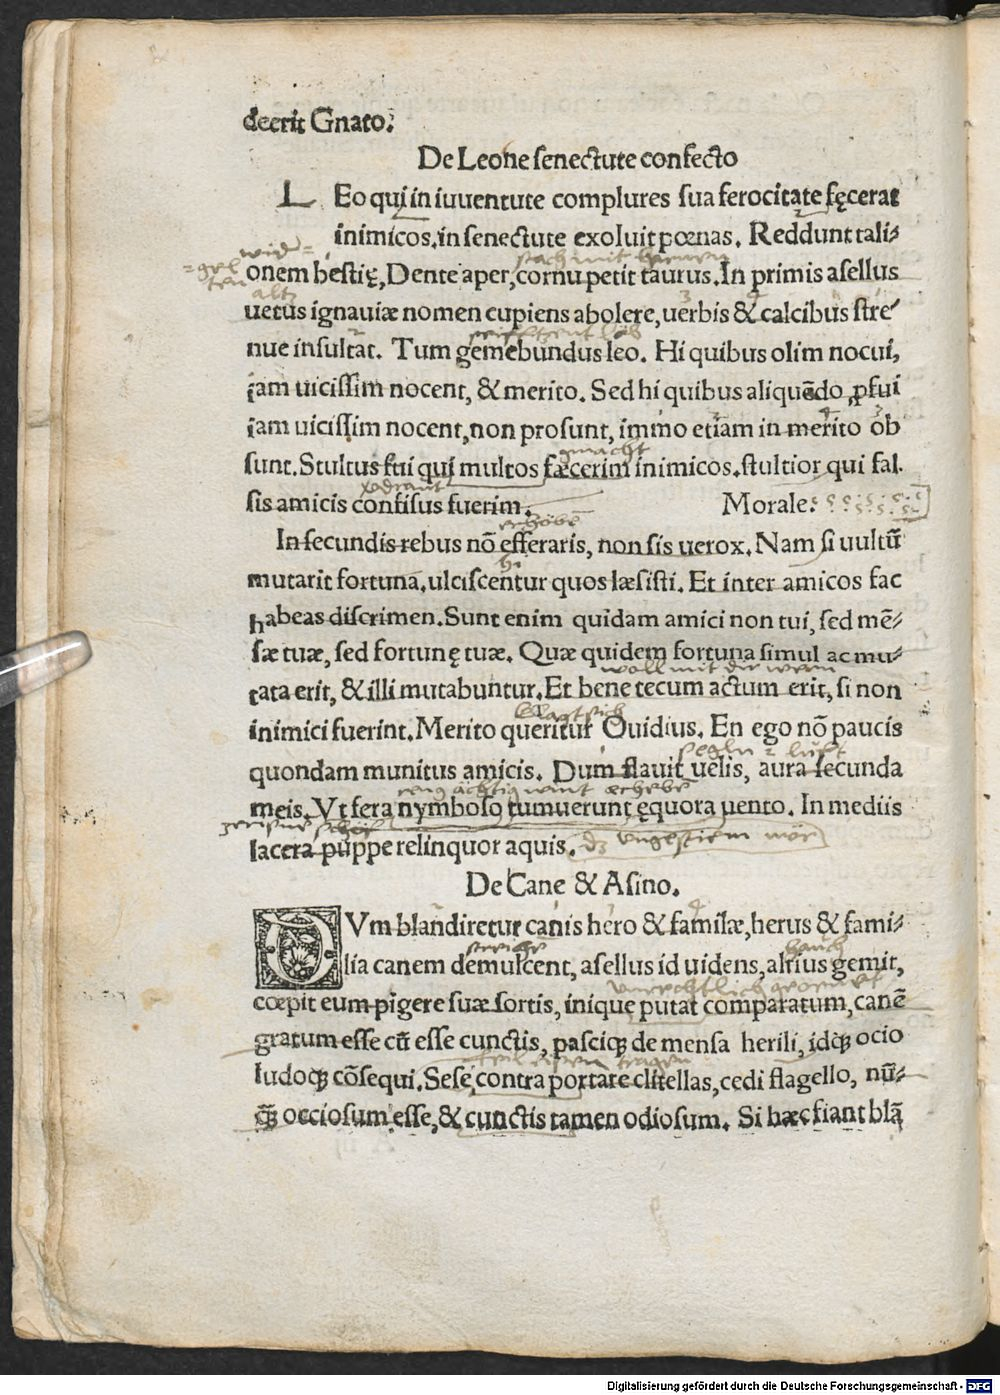 deerit Gnato.
De Leone senectute confecto
LEo qui in iuuentute complures sua ferocitate fęcerat
inimicos, in senectute exoluit pœnas. Reddunt tali-
onem bestię, Dente aper, cornu petit taurus. In primis asellus
uetus ignauiæ nomen cupiens abolere, uerbis & calcibus stre-
nue insultat. Tum gemebundus leo. Hi quibus olim nocui,
iam uicissim nocent, & merito. Sed hi quibus aliquēdo ꝓfui
iam uicissim nocent, non prosunt, immo etiam in merito ob
sunt. Stultus fui qui multos fæcerim inimicos. stultior qui fal.
sis amicis confisus fuerim. Morale:
In secundis rebus nō efferaris, non sis uerox. Nam si uultū
mutarit fortuna, ulciscentur quos læsisti. Et inter amicos fac
habeas discrimen. Sunt enim quidam amici non tui, sed mē-
sæ tuæ, sed fortunę tuæ. Quæ quidem fortuna simul ac mu-
tata erit, & illi mutabuntur. Et bene tecum actum erit, si non
inimici fuerint. Merito queritur Ouidius. En ego nō paucis
quondam munitus amicis. Dum flauit uelis, aura secunda
meis. Vt fera nymboso tumuerunt ęquora uento. In mediis
lacera puppe relinquor aquis.
De Cane & Asino.
DVm blandiretur canis hero & familæ, herus & fami-
lia canem demulcent, asellus id uidens, altius gemit,
cœpit eum pigere suæ sortis, inique putat comparatum, canē
gratum esse cū esse cunctis, pasciqꝫ de mensa herili, idqꝫ ocio
ludoqꝫ cōsequi. Sese contra portare clitellas, cedi flagello, nū-
qꝫ occiosum esse, & cunctis tamen odiosum. Si hæc fiant blā
Digitalisierung gefördert durch die Deutsche Forschungsgemeinschaft - DFG